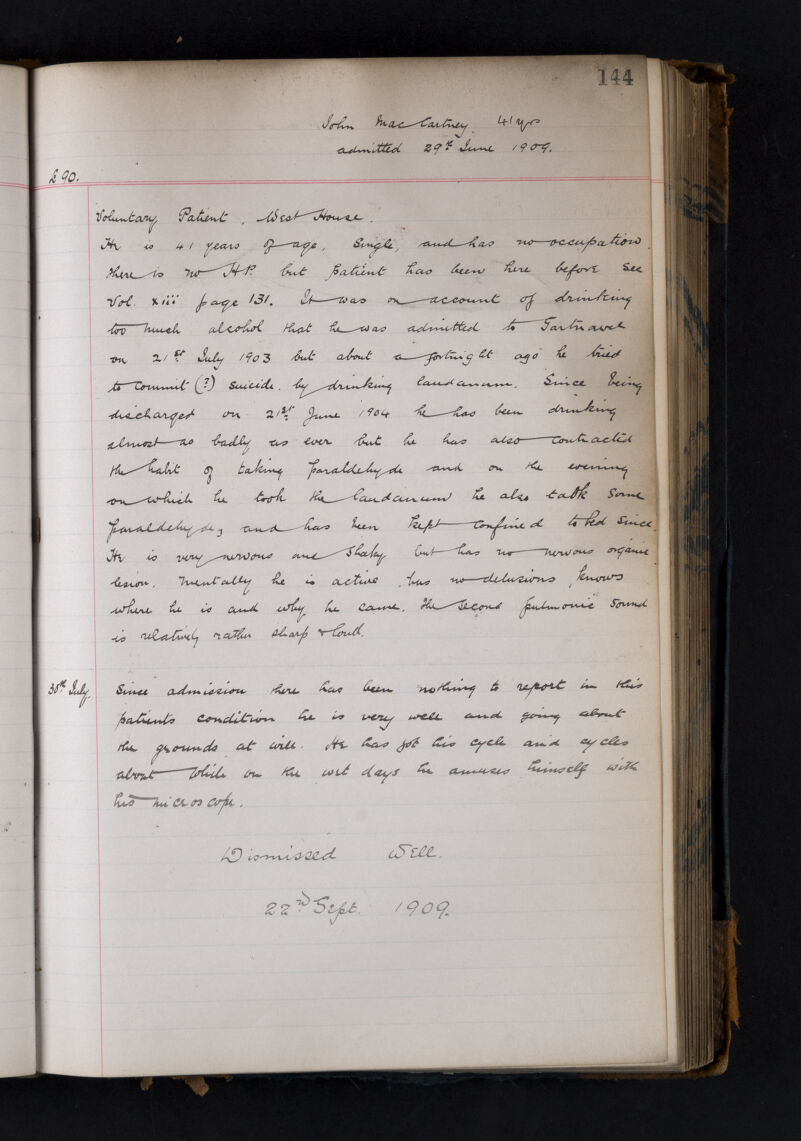 144
John MacCartney. 41 yrs
admitted 29th June 1909.
£90.
Voluntary Patient, West House.
He is 41 years of age, Single, and has no occupation.
There is no H.P. but patient has been here before see
Vol. xiii page 131. It was on account of drinking
too much alcohol that he was admitted to Gartnavel
on 21st July 1903 but about a fortnight ago he tried
to commit (?) suicide by drinking laudanum. Since being
discharged on 21st June 1904 he has been drinking
almost as badly as ever but he has also contracted
the habit of taking paraldehyde and on the evening
on which he took the laudanum he also took some
paraldehyde, and has been kept confined to bed since.
He is very nervous and shaky but has no nervous organic
lesion. Mentally he is active, has no delusions, knows
where he is and why he came. The second pulmonic sound
is relatively rather sharp & loud.
30th July.
Since admission there has been nothing to report in this
patients condition he is very well and going about
the grounds at will. He has got his cycle and cycles
about while on the wet days he amuses himself with
his microscope.
Dismissed Well.
22nd Sept. 1909.